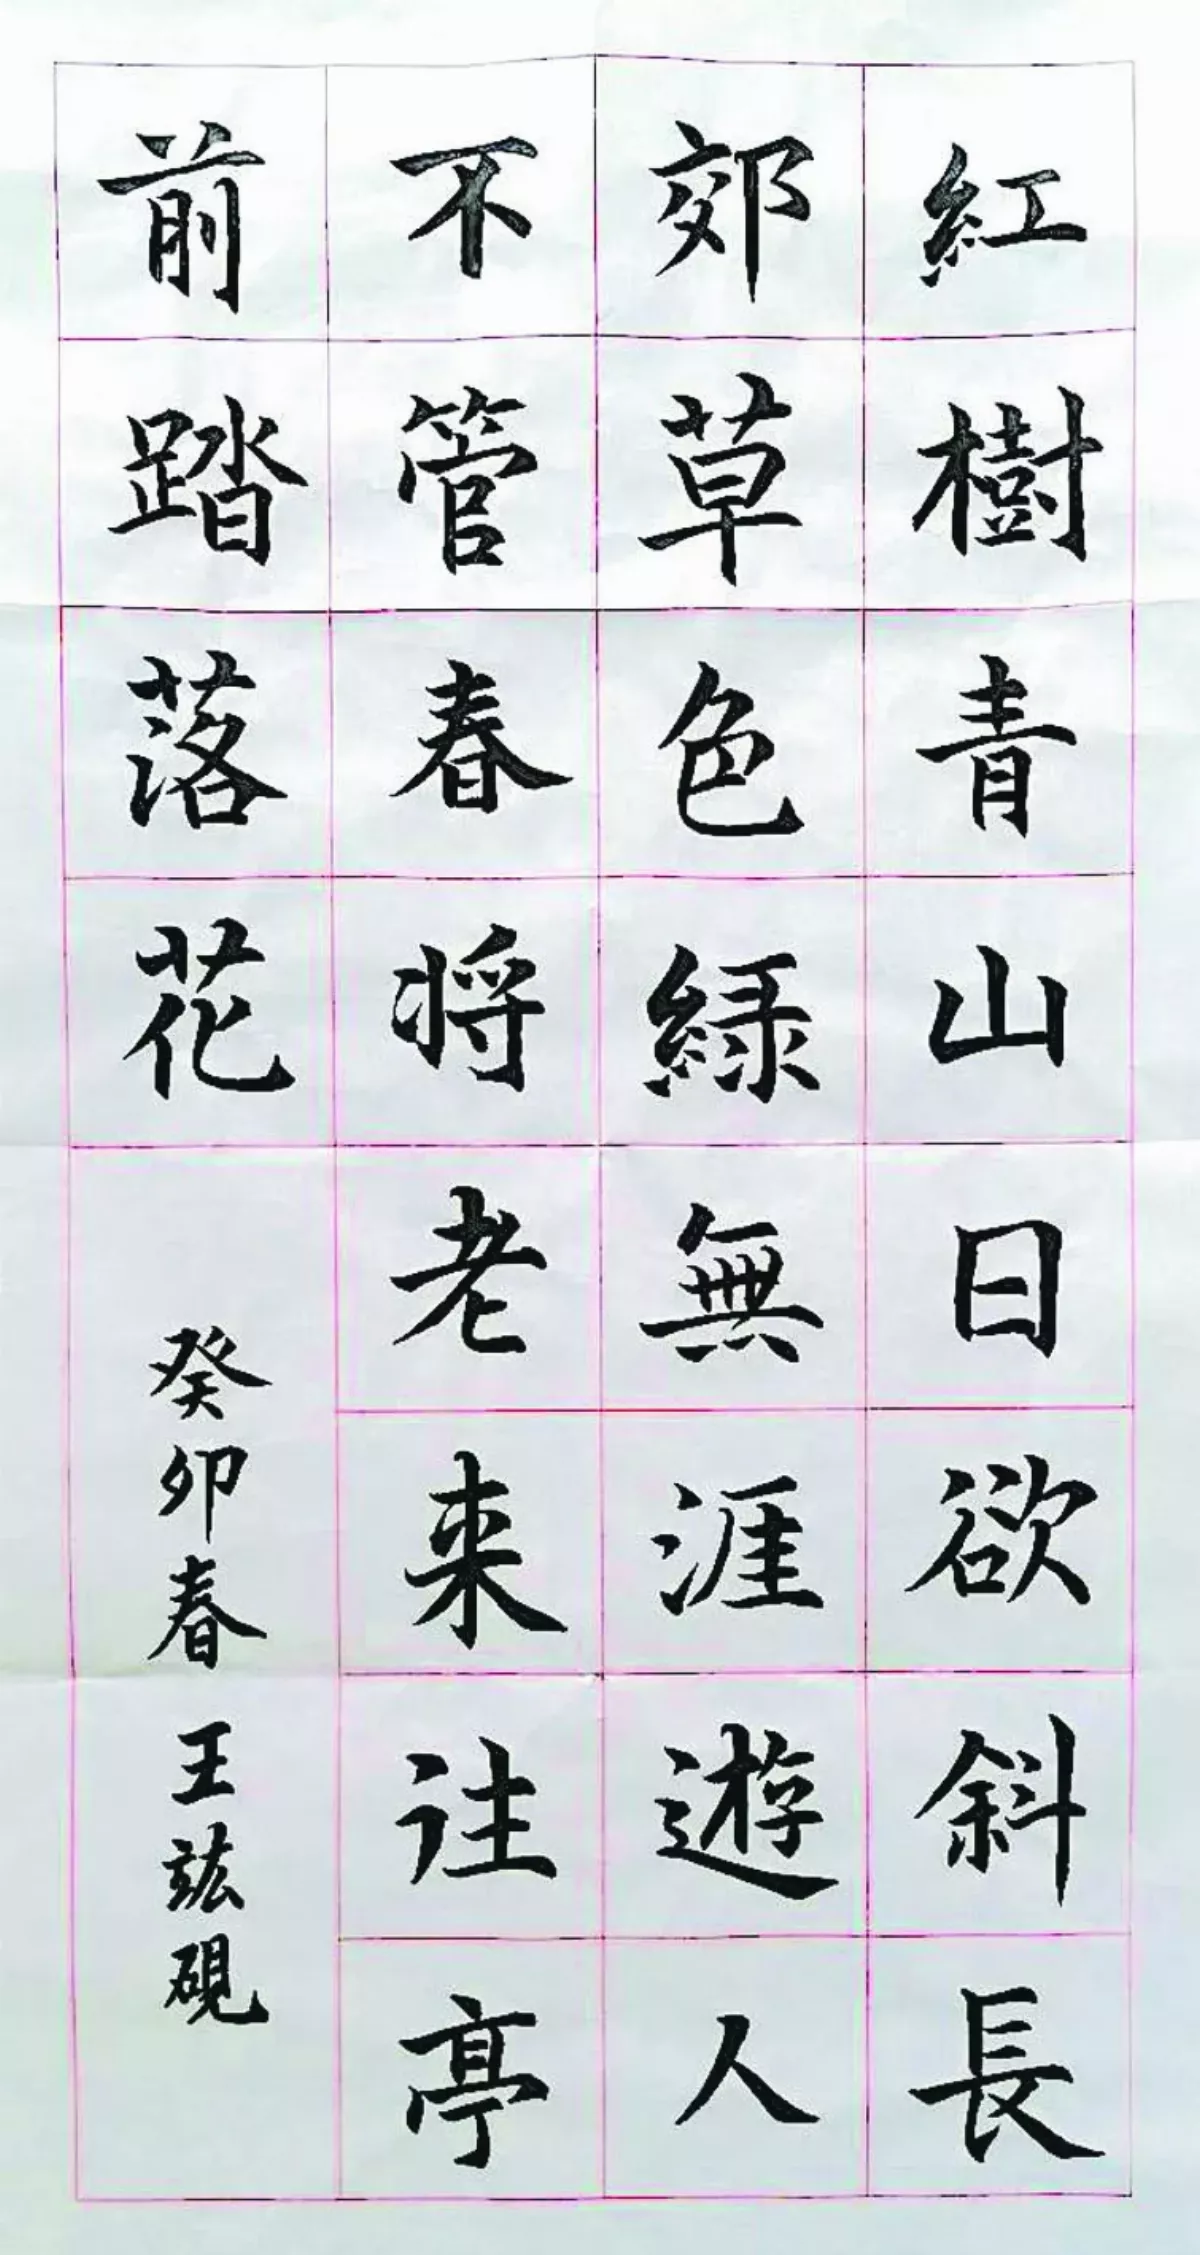 紅樹青山日欲斜長
郊草色緑無涯遊人
不管春将老来往亭
前踏落花
癸卯春 王竑硯